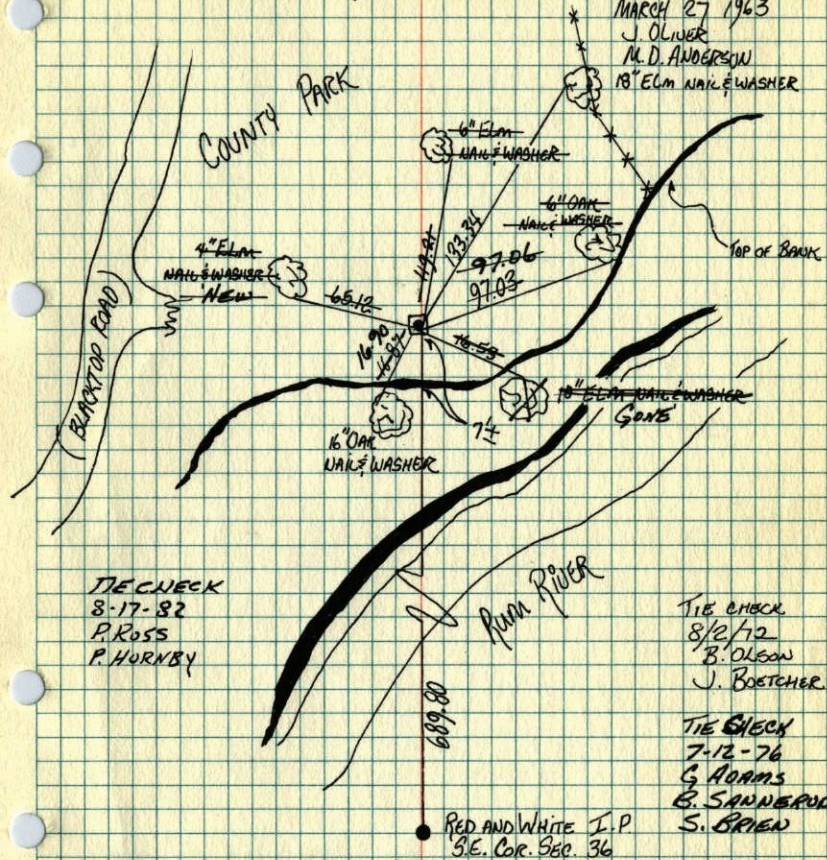 MARCH 27 1963
J. OLIVER
M.D. ANDERSON
18" ELM NAIL & WASHER
COUNTY PARK
6" ELM
NAIL & WASHER
6" OAK
NAIL & WASHER
TOP OF BANK
4" ELM
NAIL & WASHER
NEW
119.21
133.34
97.06
97.03
65.12
16.90
16.87
16.53
BLACKTOP ROAD
18" ELM NAIL & WASHER
GONE
7±
16" OAK
NAIL & WASHER
RUM RIVER
TIE CHECK
8-17-82
P. ROSS
P. HORNBY
TIE CHECK
8/2/72
B. OLSON
J. BOETCHER
689.80
TIE CHECK
7-12-76
G ADAMS
B. SANNERUD
S. BRIEN
RED AND WHITE I.P.
S.E. COR. SEC. 36